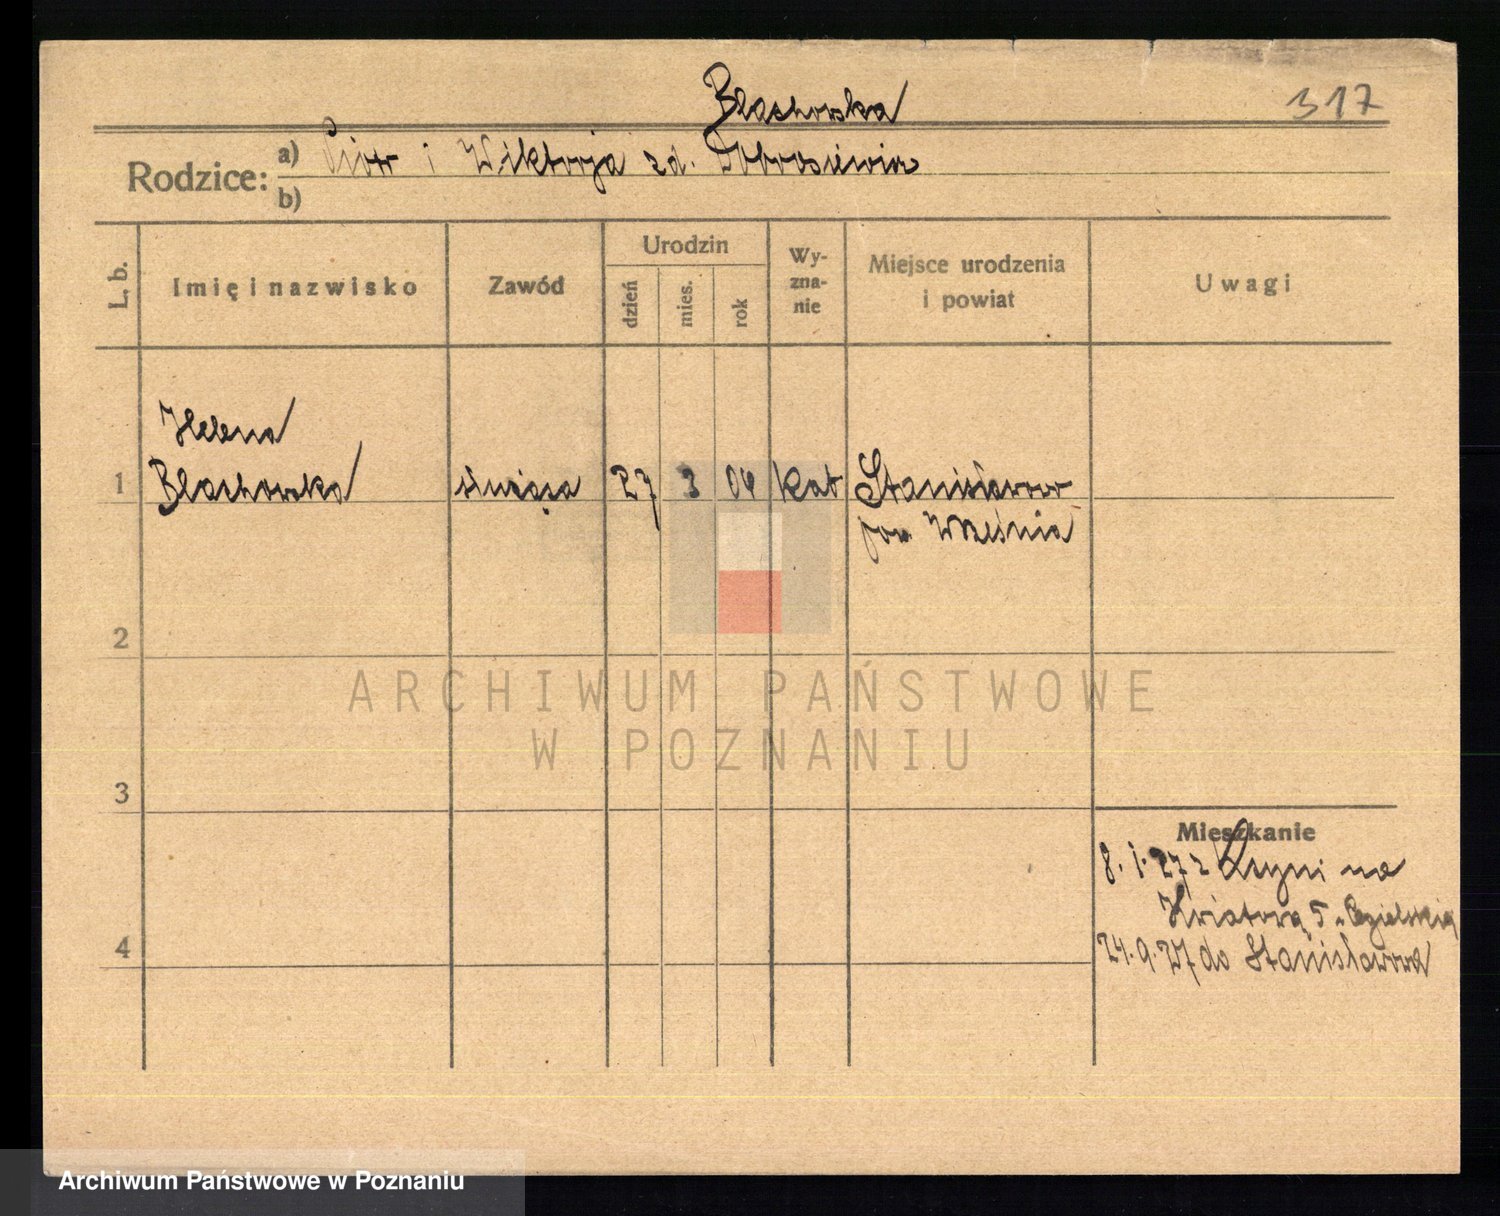 Blachowska
317
Rodzice: a) Piotr i Wiktorja zd.
b)
L. b.
Imię i nazwisko
Zawód
Urodzin
dzień
mies.
rok
Wy-
zna-
nie
Miejsce urodzenia
i powiat
Uwagi
Helena
1 Blachowska służąca 27 3 04 kat Stanisławowo
pow Września
2
ARCHIWUM PAŃSTWOWE
W POZNANIU
3
Mieszkanie
8. 1. 27 z na
Kwiatową 5
4
24. 9. 27 do Stanisławowa
Archiwum Państwowe w Poznaniu